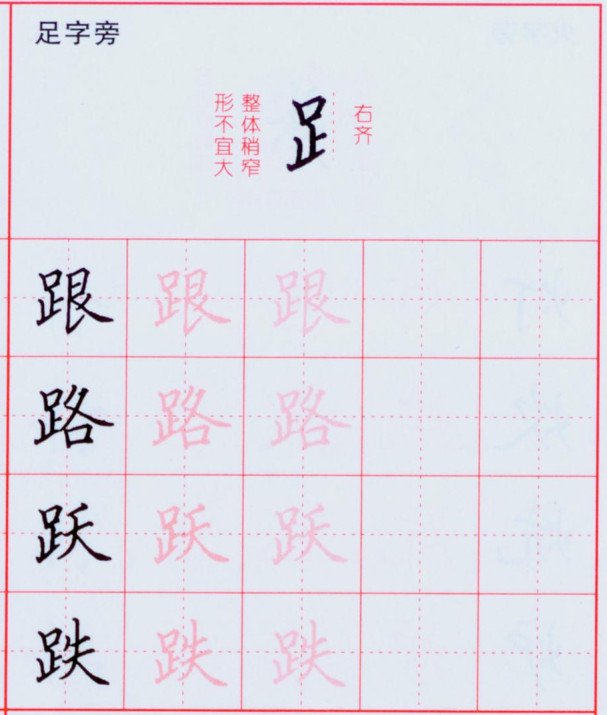 足字旁
整体稍窄
形不宜大
⻊
右齐
跟 跟 跟
路 路 路
跃 跃 跃
跌 跌 跌